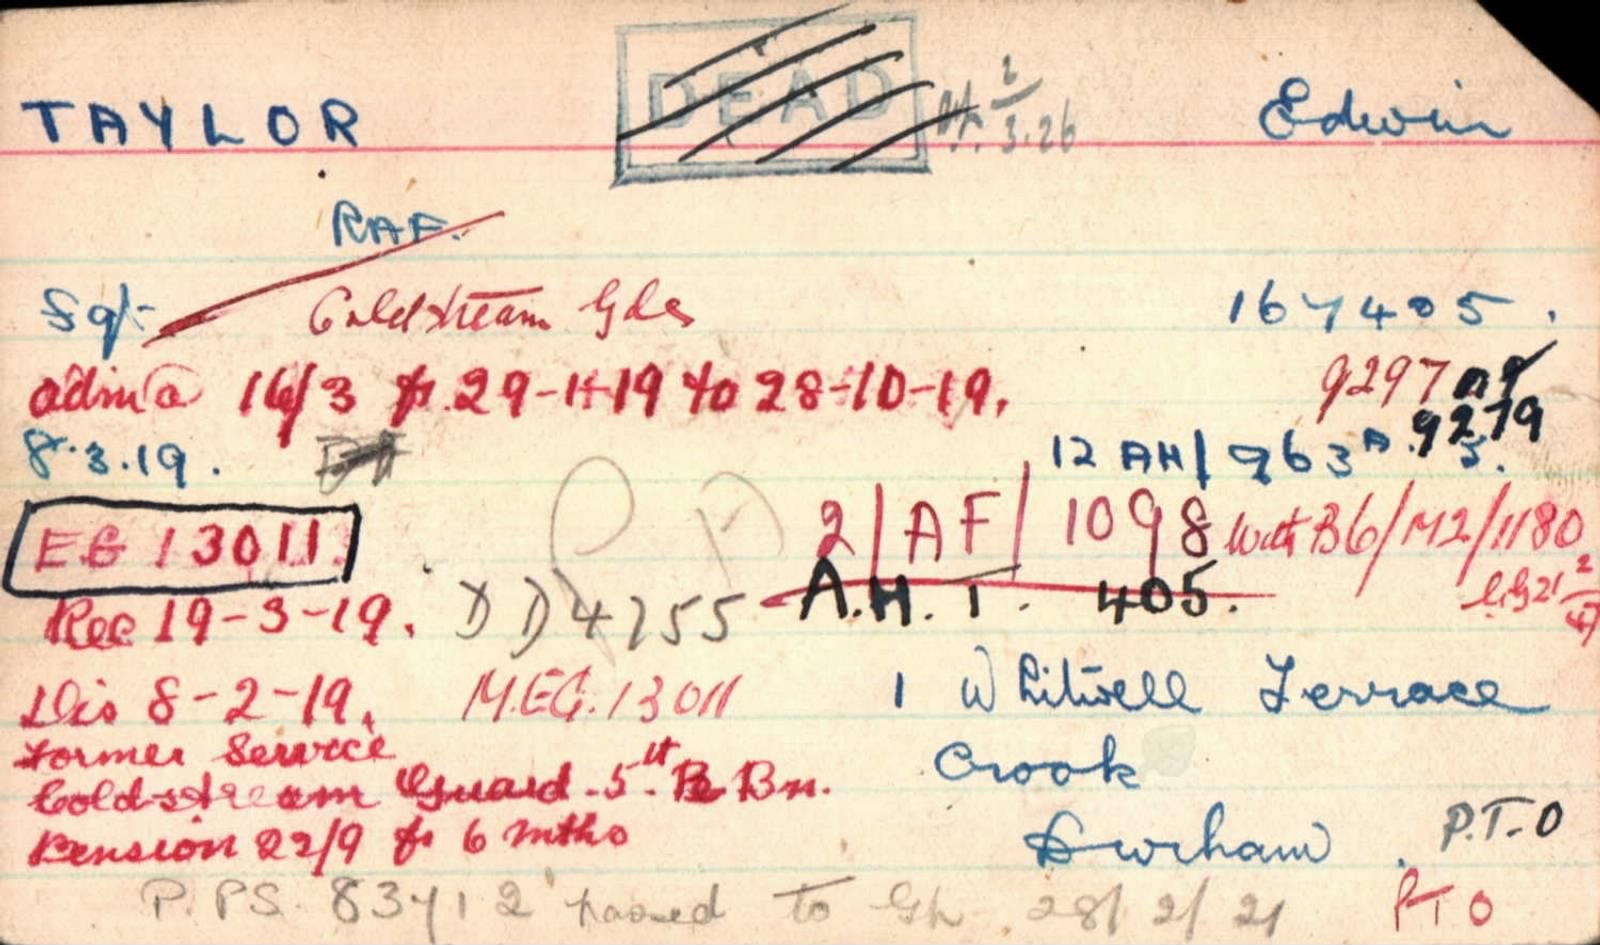 TAYLOR DEAD 2/3.26 Edwin
RAF.
Sgt Coldstream Gds 167405.
admn a 16/3 fr 29-1-19 to 28-10-19. 9297
9279
8.3.19. 12 AH/963 A.
EG 13011. 2/AF/1098 with B6/M2/1180
Rec 19-3-19. DD4755 A.H.1. 405.
Dis 8-2-19. M.EG.13011 1 Whitwell Terrace
Former Service Crook
Coldstream Guard. 5th Re Bn.
Pension 22/9 fr 6 mths Durham. P.T.O
P.PS. 83412 passed to 28/2/21 PTO